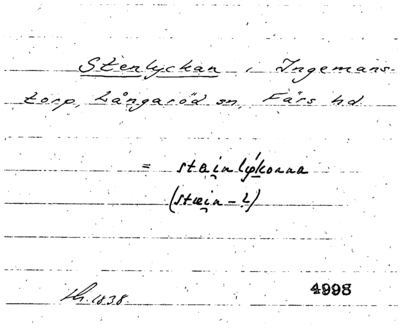 Stenlyckan i Ingemans-
torp, Långaröd sn, Färs hd.
= stæi̯nlýkonna
(stæi̯n-?)
1838.
4998